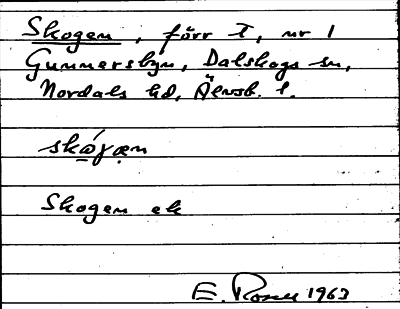 Skogen, förr T, nr 1
Gunnersbyn, Dalskogs sn,
Nordals hd, Älvsb. l.
skóγæn
Skogen ek
E. Rosell 1963